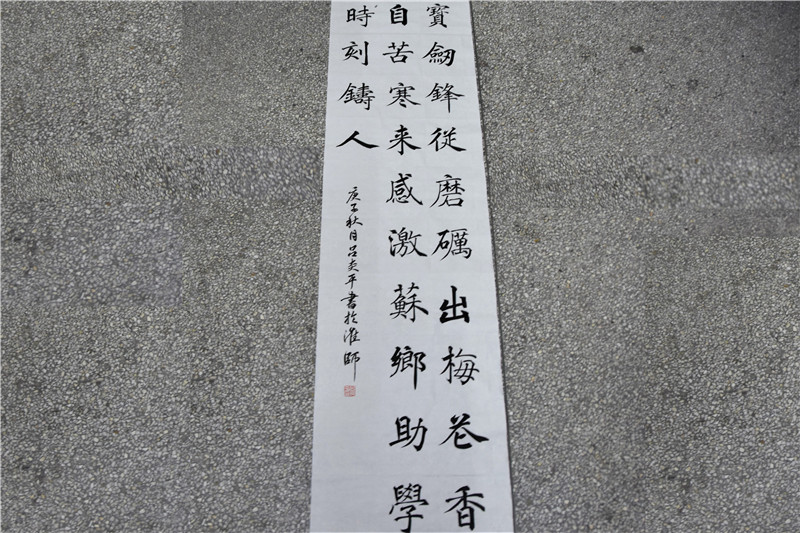 寳劒鋒從磨礪出梅花香
自苦寒来感激蘇鄉助學
時刻鑄人
庚子秋月吕炎平書於淮師